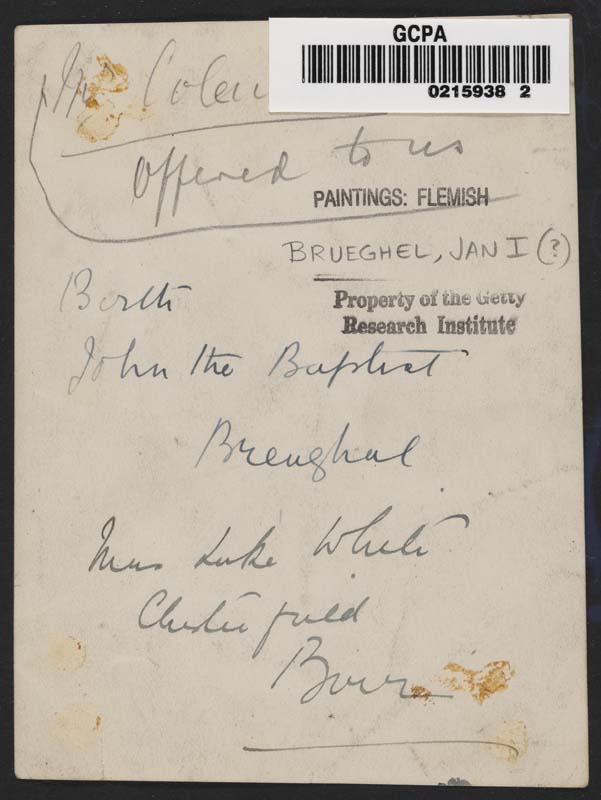 GCPA
0215938 2
offered to us
PAINTINGS: FLEMISH
BRUEGHEL, JAN I (?)
Property of the Getty
Research Institute
Birth
John the Baptist
Breughal
Mrs Luke White
Chesterfield
Birr